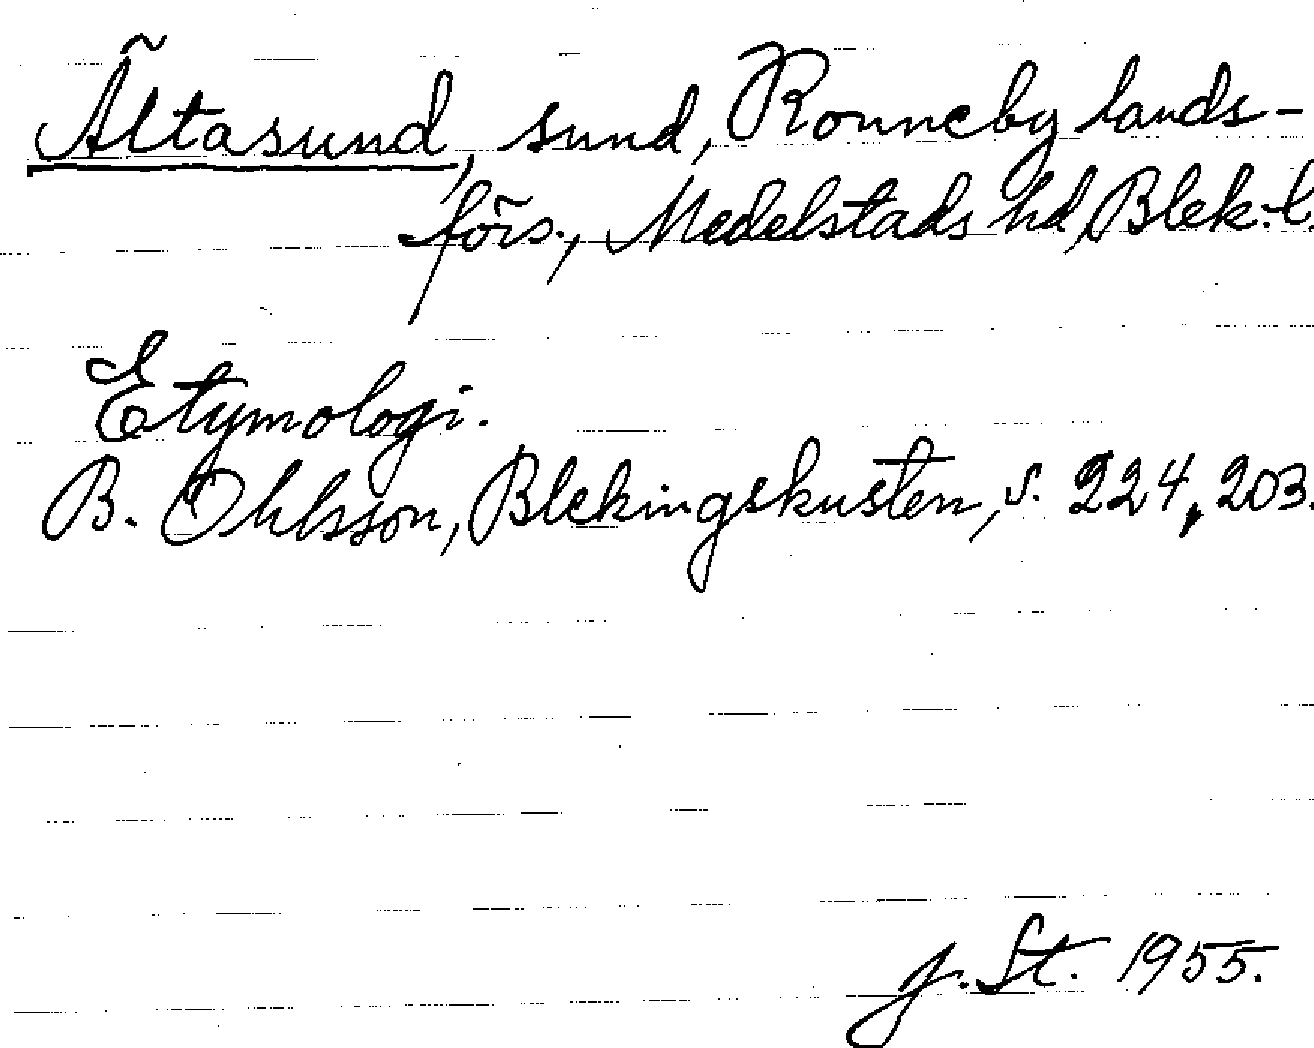 Ältasund, sund, Ronneby lands-
förs., Medelstads hd, Blek. l.
Etymologi.
B. Ohlsson, Blekingskusten, s. 224, 203.
J. St. 1955.